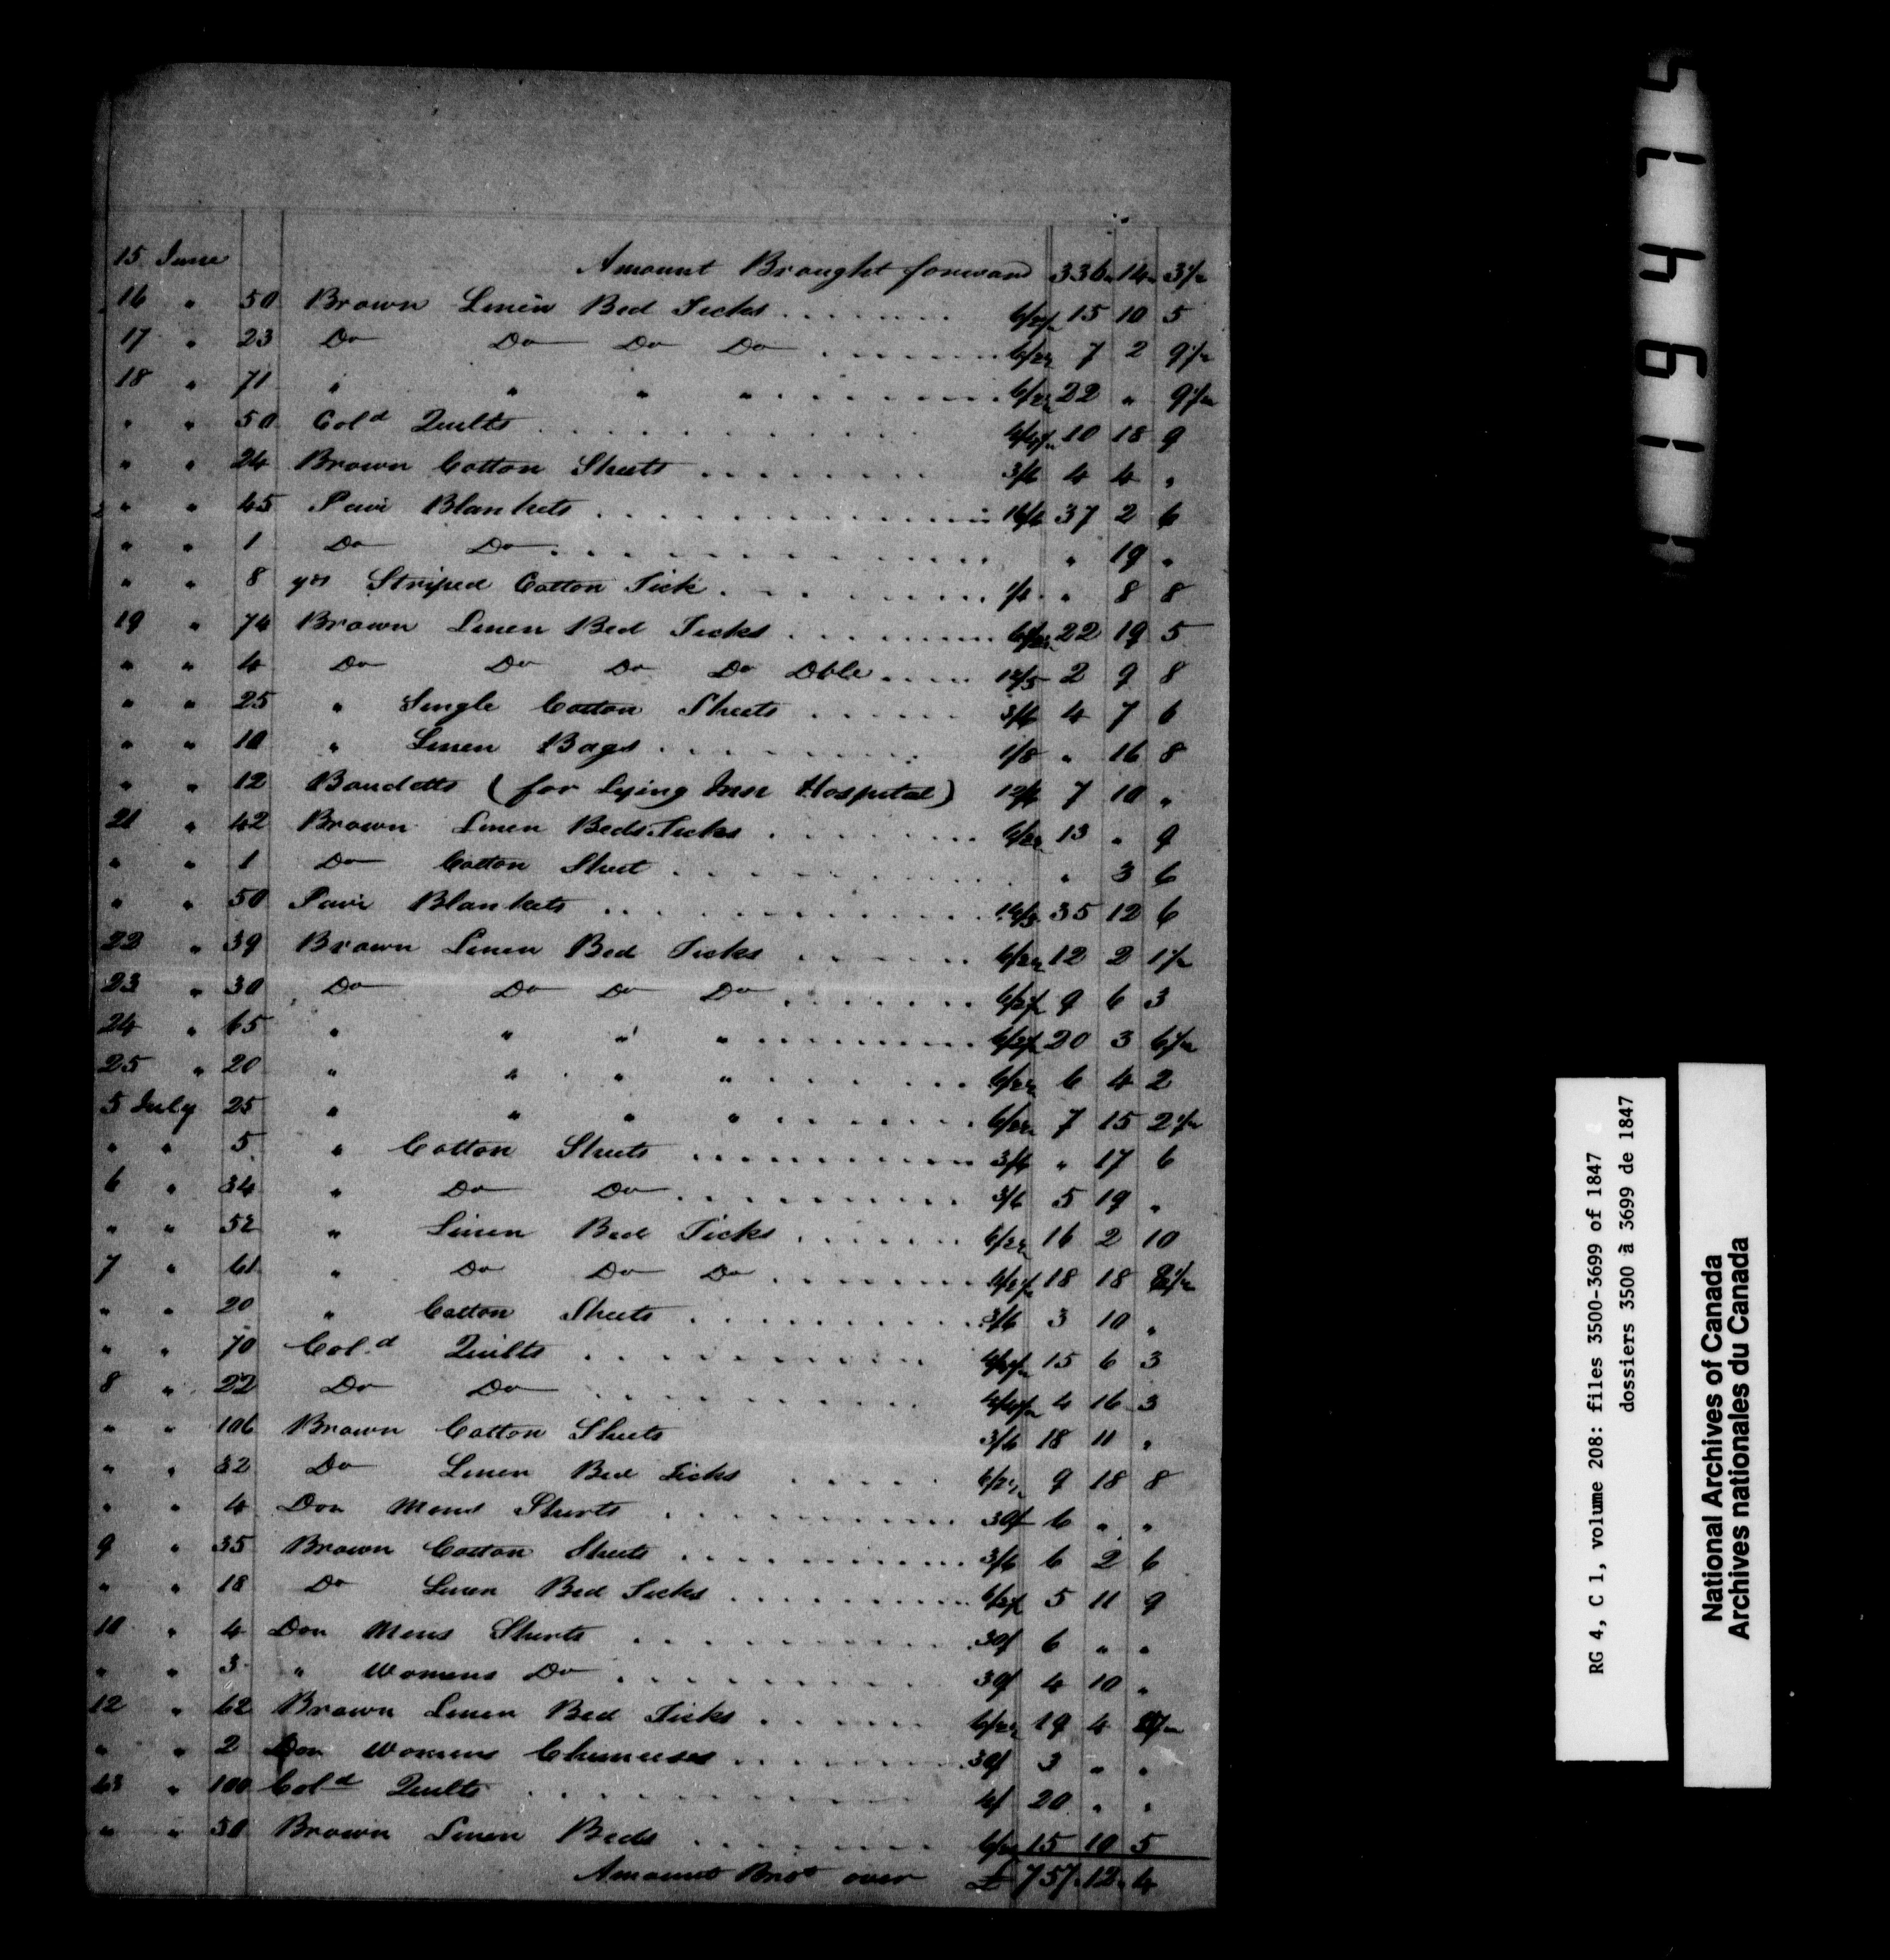 15 June Amount Brought forward 336 " 14 " 3½
16 " 50 Brown Linen Bed Ticks . . . . . . . 6/2½ 15 10 5
17 " 23 Do Do Do Do . . . . . . . 6/2½ 7 2 9½
18 " 71 " " " " . . . . . . . 6/2½ 22 " 9½
" " 50 Cold Quilts . . . . . . . 4/4½ 10 18 9
" " 24 Brown Cotton Sheets . . . . . . . 3/6 4 4 "
" " 45 Pair Blankets . . . . . . . 16/6 37 2 6
" " 1 Do Do . . . . . . . " 19 "
" " 8 yds Striped Cotton Tick . . . . . . . 1/1 " 8 8
19 " 74 Brown Linen Bed Ticks . . . . . . . 6/2½ 22 19 5
" " 4 Do Do Do Do Dble . . . . 12/5 2 9 8
" " 25 " Single Cotton Sheets . . . . . . 3/6 4 7 6
" " 10 " Linen Bags . . . . . . . 1/8 " 16 8
" " 12 Baudetts (for Lying Inn Hospital) 12/6 7 10 "
21 " 42 Brown Linen Beds Ticks . . . . . . . 6/2½ 13 " 9
" " 1 Do Cotton Sheet . . . . . . . " 3 6
" " 50 Pair Blankets . . . . . . . 14/3 35 12 6
22 " 39 Brown Linen Bed Ticks . . . . . . 6/2½ 12 2 1½
23 " 30 Do Do Do Do . . . . . . . 6/2½ 9 6 3
24 " 65 " " " " . . . . . . . 6/2½ 20 3 6½
25 " 20 " " " " . . . . . . . 6/2½ 6 4 2
5 July 25 " " " " . . . . . . . 6/2½ 7 15 2½
" " 5 " Cotton Sheets . . . . . . . 3/6 " 17 6
6 " 34 " Do Do . . . . . . . 3/6 5 19 "
" " 52 " Linen Bed Ticks . . . . . . . 6/2½ 16 2 10
7 " 61 " Do Do Do . . . . . . . 6/2½ 18 18 8½
" " 20 " Cotton Sheets . . . . . . . 3/6 3 10 "
" " 70 Col.d Quilts . . . . . . . 4/4½ 15 6 3
8 " 22 Do Do . . . . . . . 4/4½ 4 16 3
" " 106 Brown Cotton Sheets 3/6 18 11 "
" " 32 Do Linen Bed Ticks . . . . . 6/2½ 9 18 8
" " 4 Doz Mens Shirts . . . . . . . 30/ 6 " "
9 " 35 Brown Cotton Sheets . . . . . . . 3/6 6 2 6
" " 18 Do Linen Bed Ticks . . . . . . . 6/2½ 5 11 9
10 " 4 Doz Mens Shirts . . . . . . . 30/ 6 " "
" " 3 " Womens Do . . . . . . . 30/ 4 10 "
12 " 62 Brown Linen Bed Ticks . . . . . 6/2½ 19 4
" " 2 Doz Womens Chemeses . . . . . . . 30/ 3 " "
13 " 100 Cold Quilts . . . . . . . 4/ 20 " "
" " 50 Brown Linen Beds . . . . . . . 6/2½ 15 10 5
Amount Brot over £ 757 " 12 " 4
1 1 9 4 7 5
RG 4, C 1, volume 208: files 3500-3699 of 1847
dossiers 3500 à 3699 de 1847
National Archives of Canada
Archives nationales du Canada